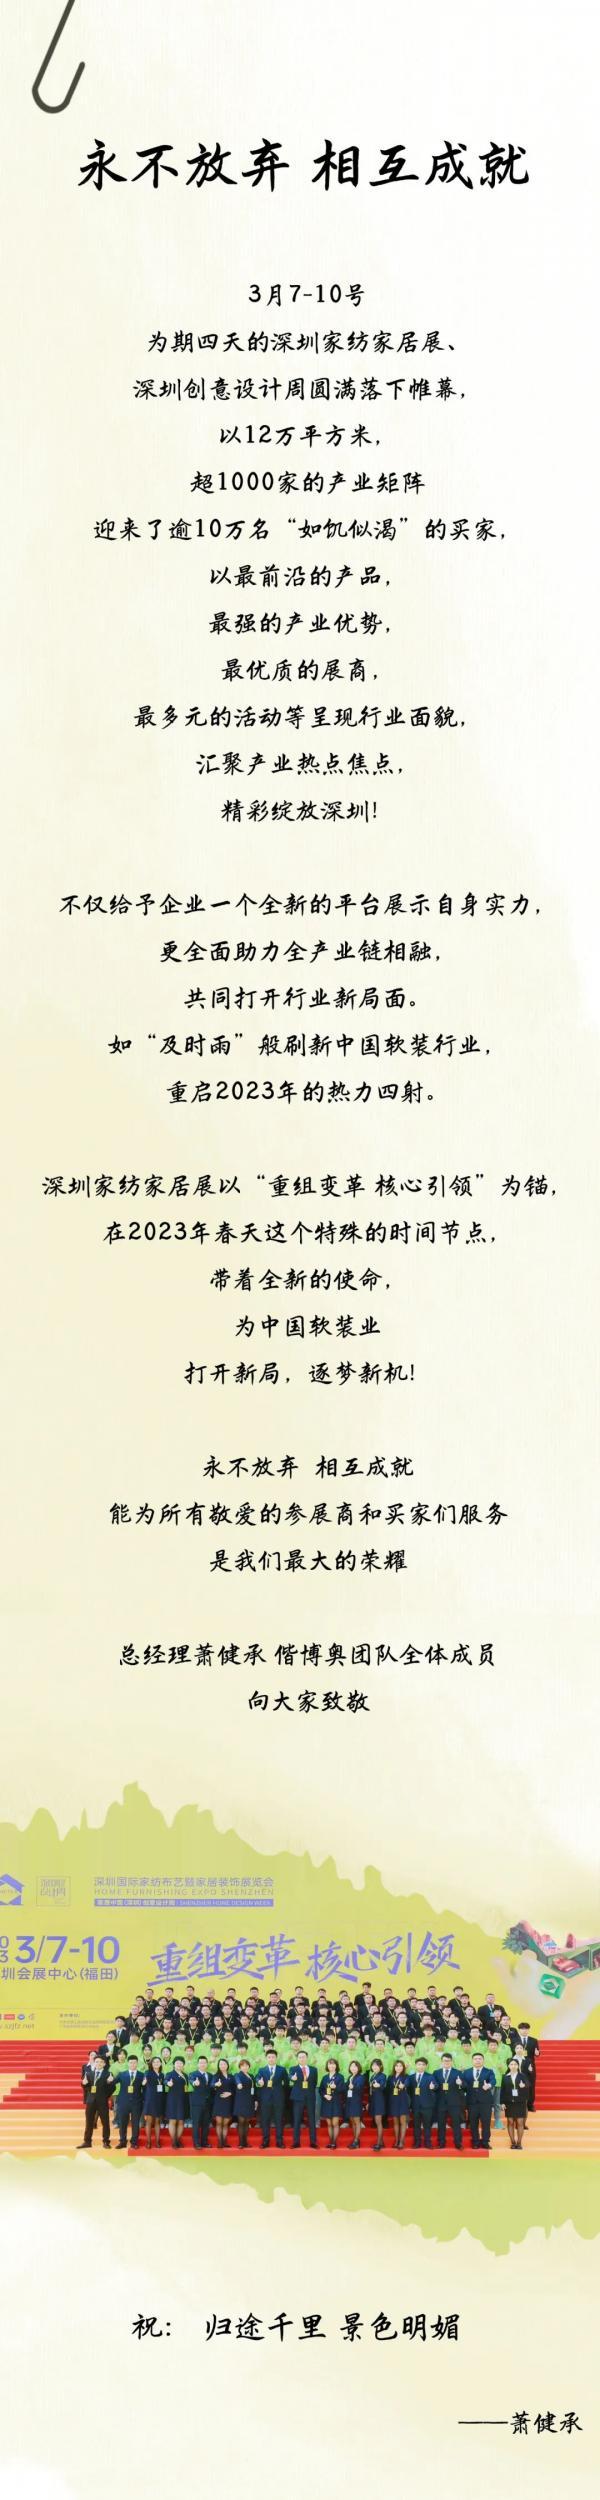 永不放弃 相互成就
3月7-10号
为期四天的深圳家纺家居展、
深圳创意设计周圆满落下帷幕，
以12万平方米，
超1000家的产业矩阵
迎来了逾10万名“如饥似渴”的买家，
以最前沿的产品，
最强的产业优势，
最优质的展商，
最多元的活动等呈现行业面貌，
汇聚产业热点焦点，
精彩绽放深圳！
不仅给予企业一个全新的平台展示自身实力，
更全面助力全产业链相融，
共同打开行业新局面。
如“及时雨”般刷新中国软装行业，
重启2023年的热力四射。
深圳家纺家居展以“重组变革 核心引领”为锚，
在2023年春天这个特殊的时间节点，
带着全新的使命，
为中国软装业
打开新局，逐梦新机！
永不放弃 相互成就
能为所有敬爱的参展商和买家们服务
是我们最大的荣耀
总经理萧健承 偕博奥团队全体成员
向大家致敬
深圳国际家纺布艺暨家居装饰展览会
HOME FURNISHING EXPO SHENZHEN
3/7-10
圳会展中心(福田)
重组变革 核心引领
祝： 归途千里 景色明媚
——萧健承